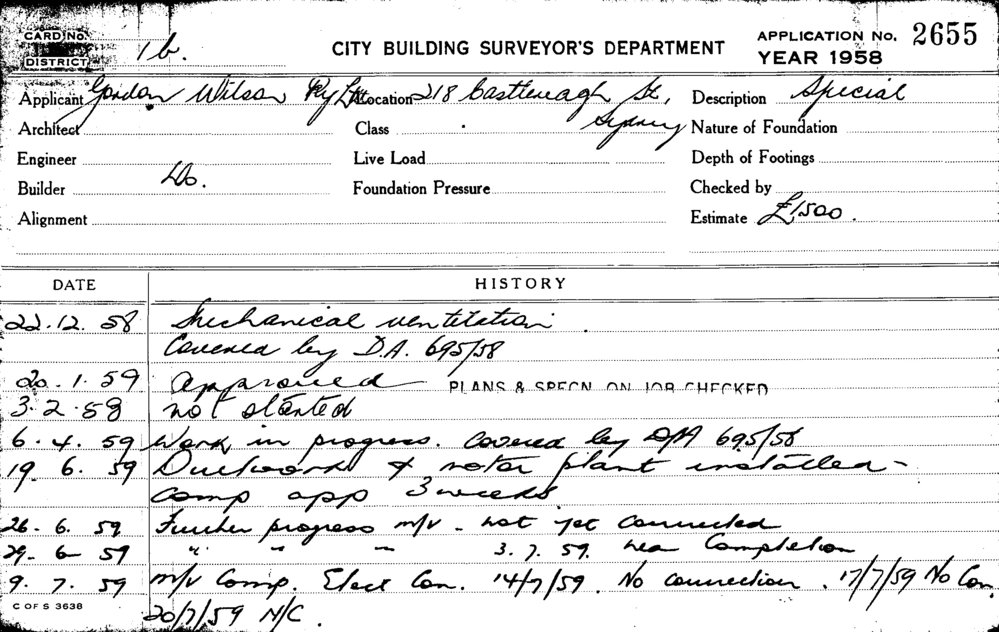 CARD No. 1b.
DISTRICT
CITY BUILDING SURVEYOR'S DEPARTMENT
APPLICATION No. 2655
YEAR 1958
Applicant Gordon Wilson Pty Ltd Location 218 Castlereagh St, Sydney Description Special
Architect Class Nature of Foundation
Engineer Live Load Depth of Footings
Builder Do. Foundation Pressure Checked by
Alignment Estimate £1500.
DATE HISTORY
22.12.58 Mechanical ventilation
Covered by D.A. 695/58
20.1.59 Approved PLANS & SPECN. ON JOB CHECKED
3.2.59 not started
6.4.59 Work in progress. Covered by D/A 695/58
19.6.59 Ductwork & motor plant installed -
Comp app 3 weeks
26.6.59 Further progress m/v - not yet connected
29-6-59 " " - 3.7.59. near Completion
9.7.59 m/v Comp. Elect Con. 14/7/59. No connection. 17/7/59 No Con.
C OF S 3638
20/7/59 N/C.